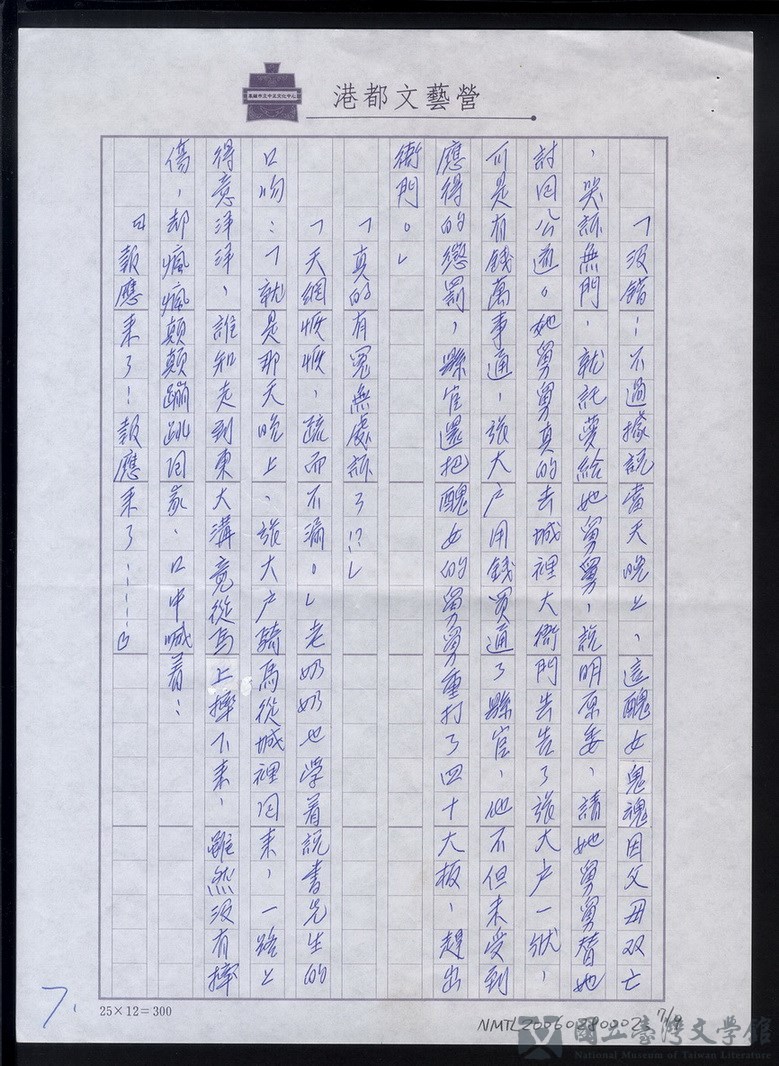 港都文藝營
高雄市立中正文化中心
「沒錯!不過據說當天晚上,這醜女鬼魂因父母双亡
,哭訴無門,就託夢給她舅舅,說明原委,請她舅舅替她
討回公道。她舅舅真的去城裡大衙門告告了張大户一狀,
可是有錢萬事通,張大户用錢買通了縣官,他不但未受到
應得的懲罰,縣官還把醜女的舅舅重打了四十大板,趕出
衙門。」
「真的有冤無處訴了!?」
「天網恢恢,疏而不漏。」老奶奶也学着說書先生的
口吻:「就是那天晚上,張大户騎馬從城裡回來,一路上
得意洋洋,誰知走到東大溝竟從馬上摔下來,雖然沒有摔
傷,却瘋瘋顛顛蹦跳回家,口中喊着:
『報應來了!報應來了……』
7.
25×12=300
NMTL20060280002 7/9
國立臺灣文學館
National Museum of Taiwan Literature